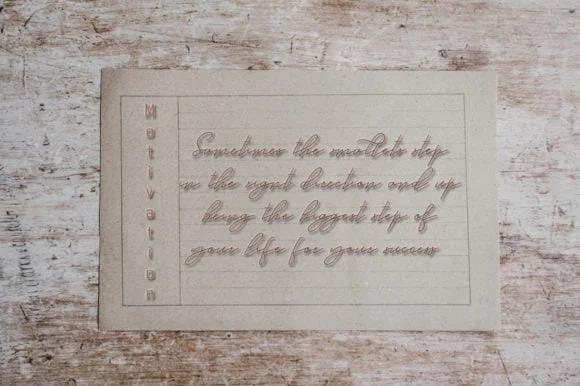 Motivation
Sometimes the smallets step
in the right direction end up
being the biggest step of
your life for your success